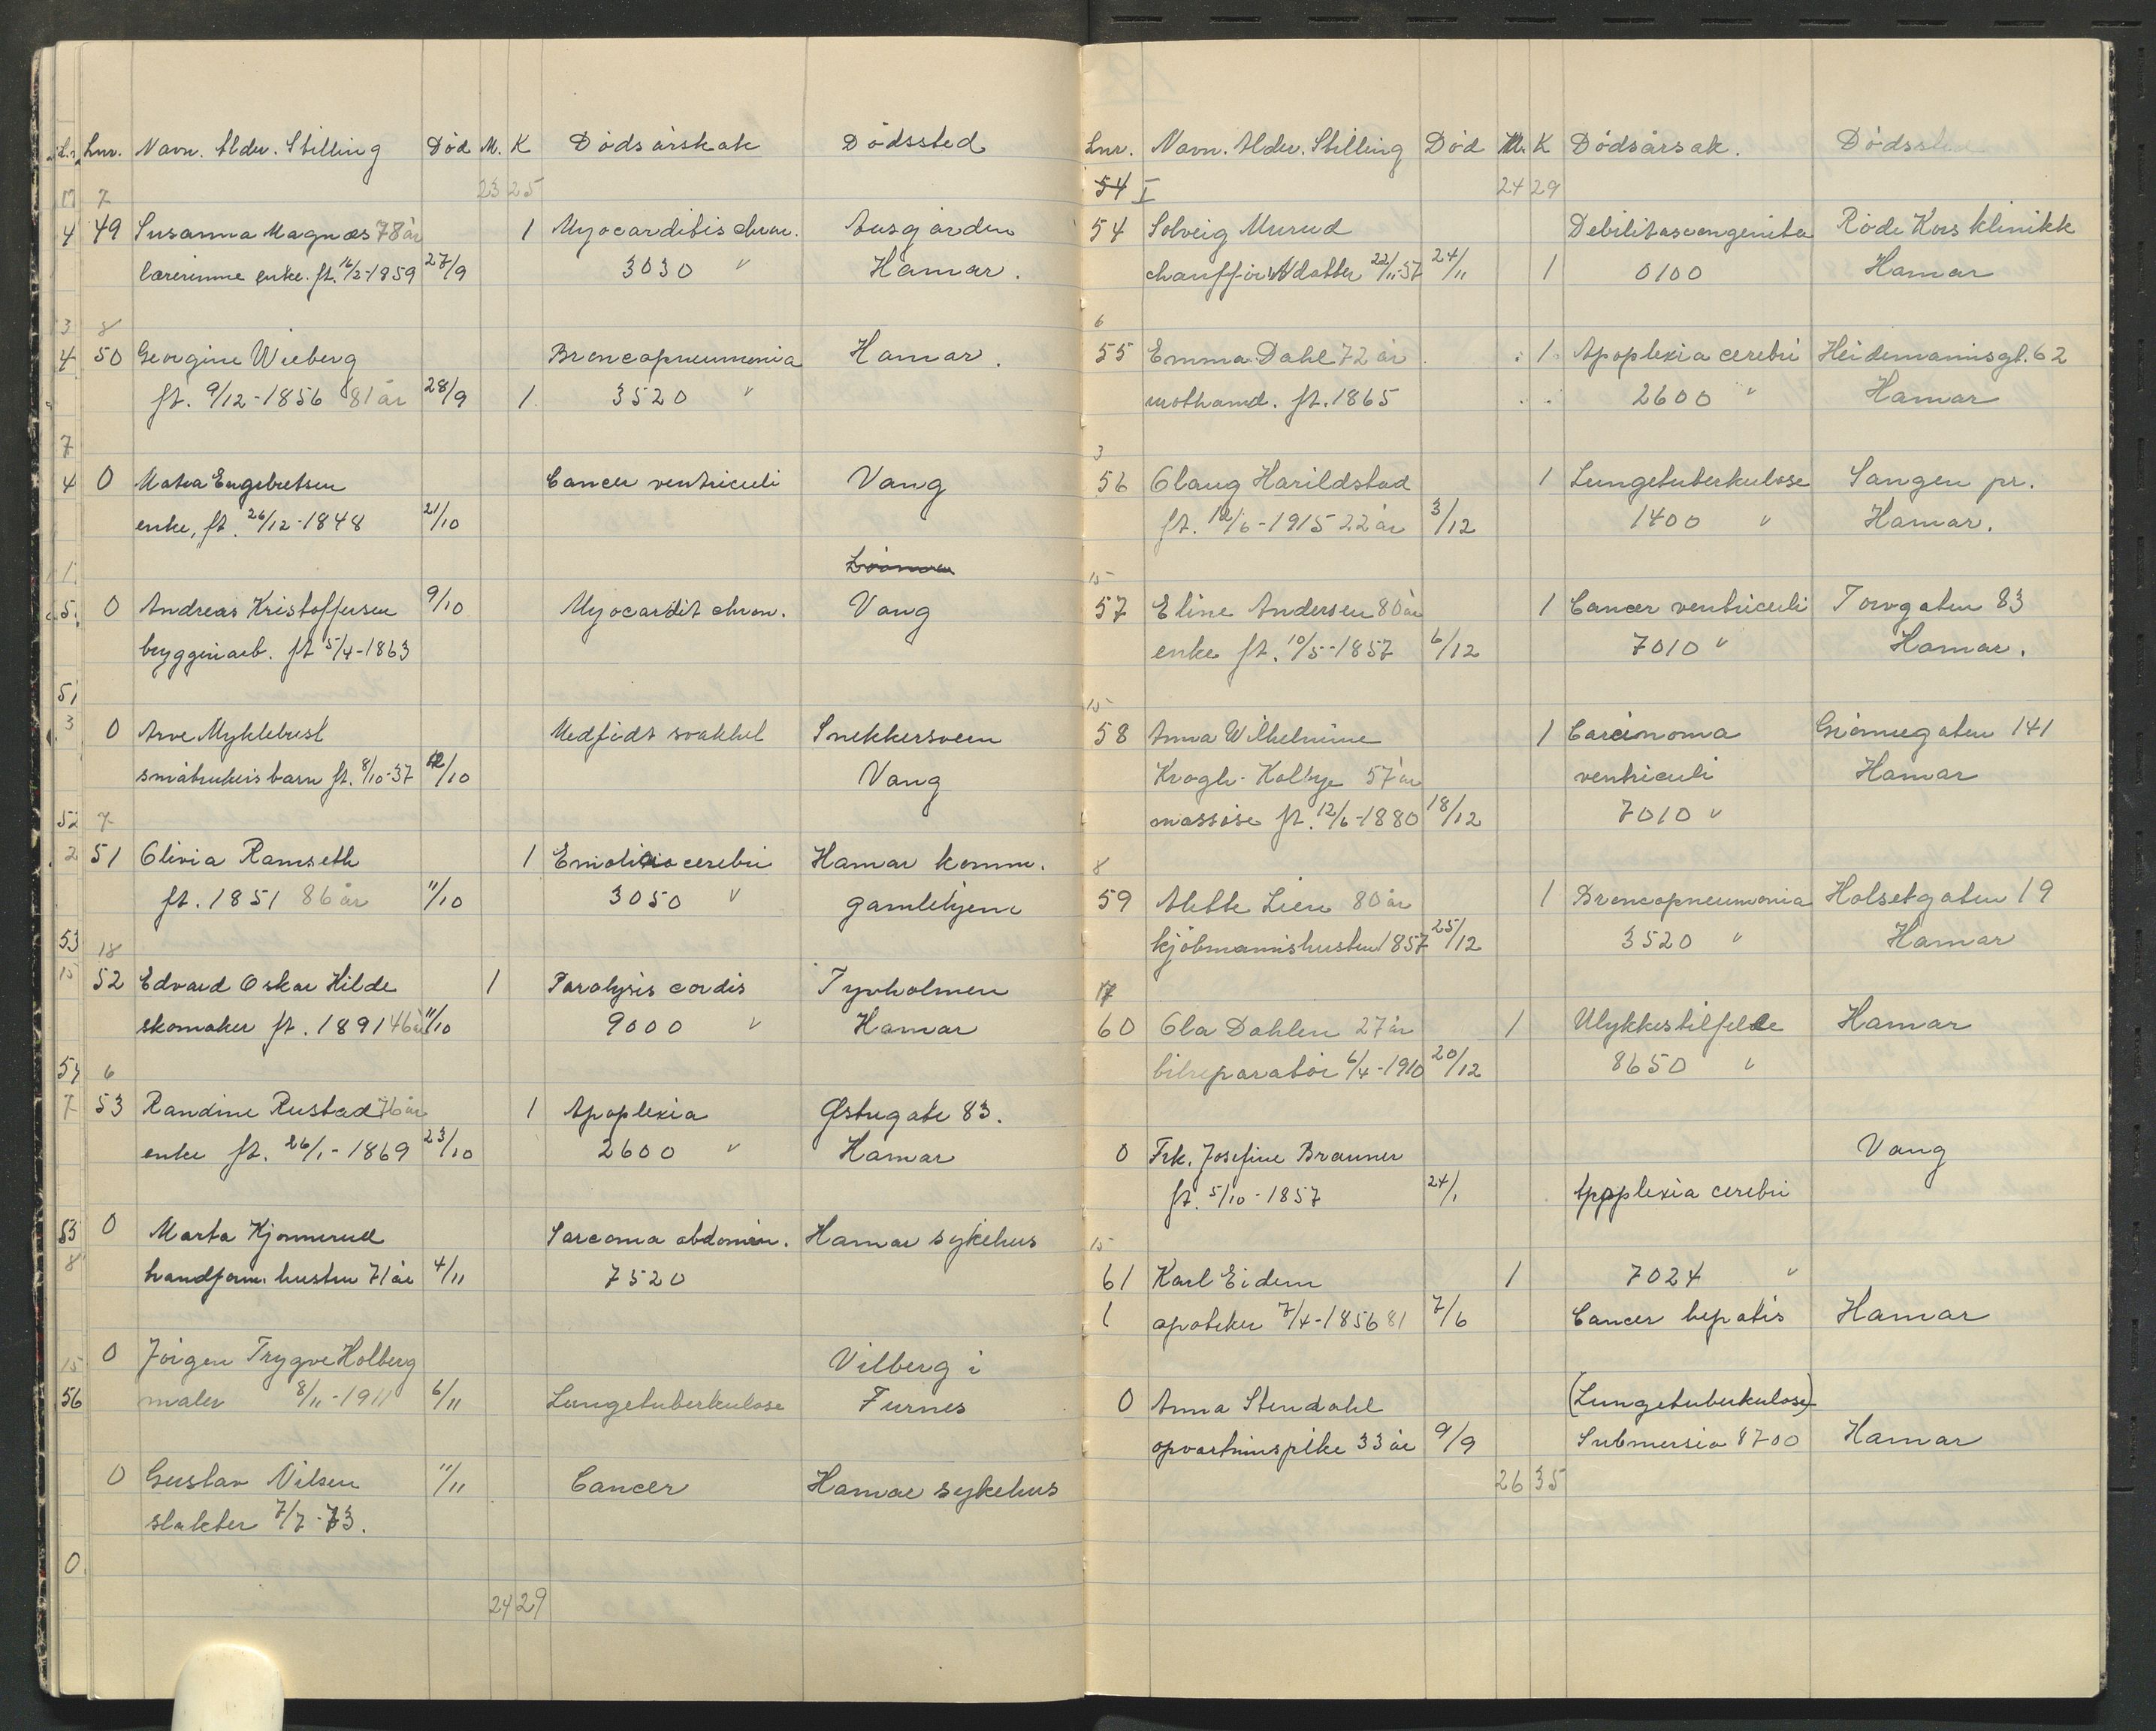 Lnr. Navn. Alder. Stilling Død M. K Dødsårskak Dødssted
7 23 25
49 Susanna Magnæs 78 år 1 Myocarditis chron. Aasgården
lærerinne enke. ft. 16/2-1859 27/9 3030 " Hamar.
8
50 Georgine Wieberg Broncopneumonia Hamar.
ft. 9/12-1856 81 år 28/9 1 3520 "
0 Matea Engebretsen Cancer ventriculi Vang
enke, ft. 26/12-1848 21/10
0 Andreas Kristoffersen 9/10 Myocardit chron. Vang
bryggeriarb. ft 5/4-1863
0 Arve Myklebust Medfødt svakhet Snekkersveen
småbrukers barn ft. 8/10-37 12/10 Vang
7
51 Olivia Ramseth 1 Emolitio cerebri Hamar komm.
ft. 1851 86 år 11/10 3050 " gamlehjem
18
52 Edvard Oskar Hilde 1 Paralysis cordis Tyvholmen
skomaker ft. 1891 46 år 11/10 9000 " Hamar
6
53 Randine Rustad 76 år 1 Apoplexia Østregate 83.
enke ft. 26/1-1869 23/10 2600 " Hamar
0 Marta Kjonnerud Sarcoma abdomin. Hamar sykehus
handform. hustru 71 år 4/11 7520
0 Jörgen Trygve Holberg Vilberg i
maler 8/11-1911 6/11 Lungetuberkulose Furnes
0 Gustav Nilsen 11/11 Cancer Hamar sykehus
slakter 7/7-73.
24 29
Lnr. Navn. Alder. Stilling Død M. K Dødsårsak. Dødssted
54 I 24 29
54 Solveig Murud Debilitas congenita Röde Kors klinikk
chauffør datter 22/11-37 24/11 1 0100 Hamar
6
55 Emma Dahl 72 år 1 Apoplexia cerebri Heidemannsgt. 62
mothand. ft. 1865 2600 " Hamar
3
56 Olaug Harildstad 1 Lungetuberkulose Sangen pr.
ft. 12/6-1915 22 år 3/12 1400 " Hamar.
15
57 Eline Andersen 80 år 1 Cancer ventriculi Torvgaten 83
enke ft. 10/5-1857 6/12 7010 " Hamar.
15
58 Anna Wilhelmine 1 Carcinoma Grönnegaten 141
Krogh-Kolbye 57 år ventriculi Hamar
massøse ft. 12/6-1880 18/12 7010 "
8
59 Alette Lien 80 år 1 Broncopneumonia Holsetgaten 19
kjøbmannshustru 1857 25/12 3520 " Hamar
17
60 Ola Dahlen 27 år 1 Ulykkestilfelle Hamar
bilreparatör 6/4-1910 20/12 8650 "
0 Frk. Josefine Brauner Vang
ft. 5/10-1857 24/1 Apoplexia cerebri
15
61 Karl Eidem 1 7024 "
1 apoteker 7/4-1856 81 7/6 Cancer hepatis Hamar
0 Anna Stendahl (Lungetuberkulose)
opvartningspike 33 år 9/9 Submersio 8700 Hamar
26 35